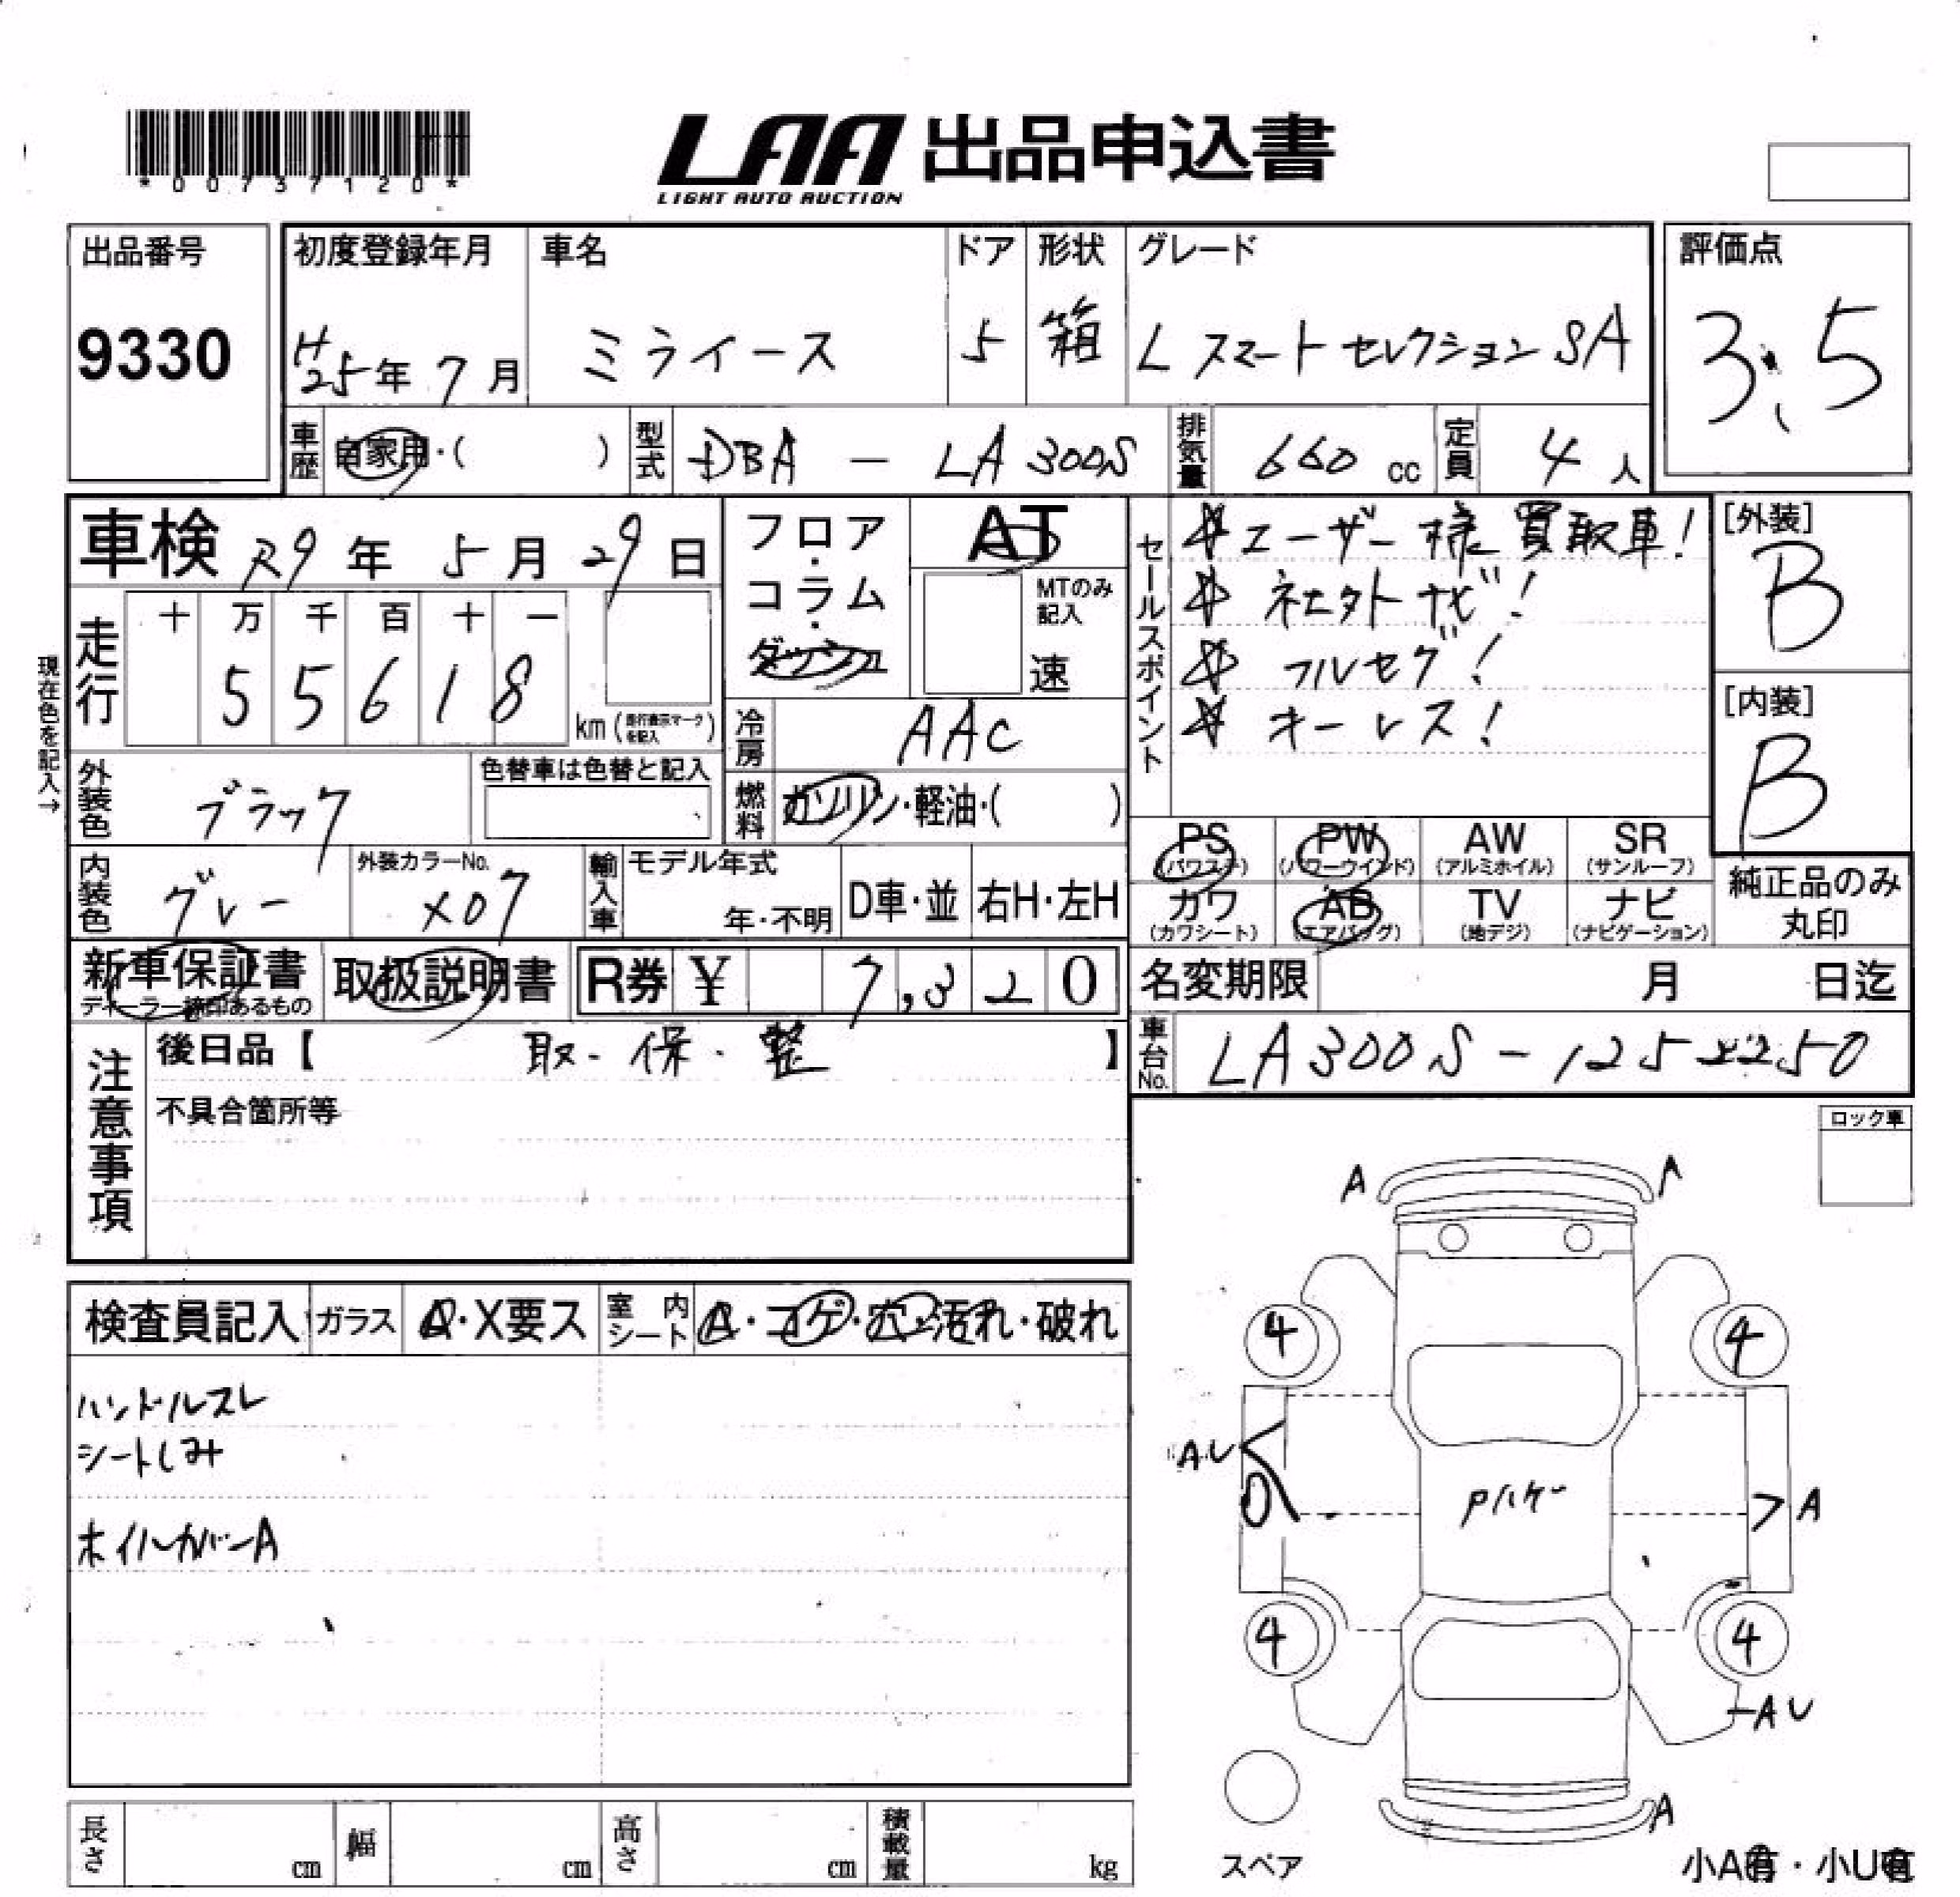 *00737120*
LAA 出品申込書
LIGHT AUTO AUCTION
出品番号
9330
初度登録年月
H25年 7月
車名
ミライース
ドア
5
形状
箱
グレード
L スマートセレクション SA
評価点
3.5
車歴
自家用・( )
型式
DBA - LA300S
排気量
660 cc
定員
4 人
車検 R9 年 5 月 29 日
走行
十 万 千 百 十 一
5 5 6 1 8
km (走行表示マークを記入)
現在色を記入→
外装色
ブラック
色替車は色替と記入
内装色
グレー
外装カラーNo.
X07
フロア・コラム・ダッシュ
AT
MTのみ記入
速
冷房
AAC
燃料
ガソリン・軽油・( )
輸入車
モデル年式
年・不明
D車・並
右H・左H
セールスポイント
☆ユーザー様買取車!
☆ 社外ナビ!
☆ フルセグ!
☆ キーレス!
[外装]
B
[内装]
B
PS (パワステ)
PW (パワーウインド)
AW (アルミホイル)
SR (サンルーフ)
カワ (カワシート)
AB (エアバッグ)
TV (地デジ)
ナビ (ナビゲーション)
純正品のみ丸印
新車保証書
ディーラー締印あるもの
取扱説明書
R券 ¥ 7,320
名変期限 月 日迄
車台No.
LA300S-1252250
注意事項
後日品【 取・保・整 】
不具合箇所等
ロック車
検査員記入
ガラス
A・X要ス
室内シート
A・コゲ・穴・汚れ・破れ
ハンドルスレ
シートしみ
ホイルカバーA
A A
4 4
AU
Pハゲー
A
4 4
AU
A
スペア
小A有・小U有
長さ cm
幅 cm
高さ cm
積載量 kg